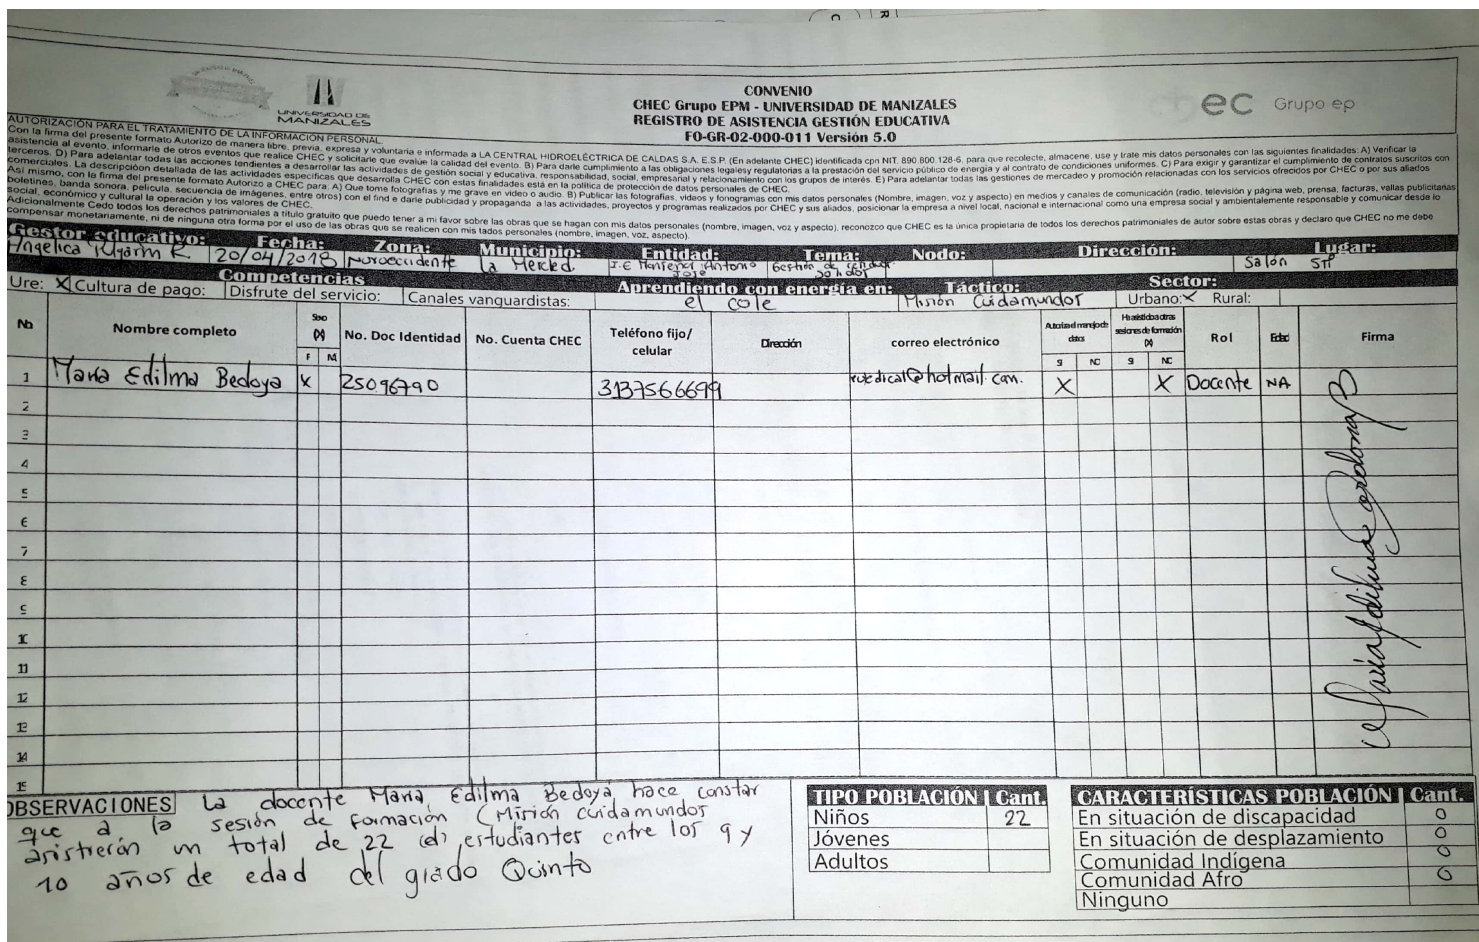 UNIVERSIDAD DE
MANIZALES
CONVENIO
CHEC Grupo EPM - UNIVERSIDAD DE MANIZALES
REGISTRO DE ASISTENCIA GESTIÓN EDUCATIVA
FO-GR-02-000-011 Versión 5.0
ec Grupo ep
AUTORIZACIÓN PARA EL TRATAMIENTO DE LA INFORMACIÓN PERSONAL.
Con la firma del presente formato Autorizo de manera libre, previa, expresa y voluntaria e informada a LA CENTRAL HIDROELÉCTRICA DE CALDAS S.A. E.S.P. (En adelante CHEC) identificada cpn NIT. 890.800.128-6, para que recolecte, almacene, use y trate mis datos personales con las siguientes finalidades: A) Verificar la
asistencia al evento, informarle de otros eventos que realice CHEC y solicitarle que evalue la calidad del evento. B) Para darle cumplimiento a las obligaciones legalesy regulatorias a la prestación del servicio público de energía y al contrato de condiciones uniformes. C) Para exigir y garantizar el cumplimiento de contratos suscritos con
terceros. D) Para adelantar todas las acciones tendientes a desarrollar las actividades de gestión social y educativa, responsabilidad, social, empresarial y relacionamiento con los grupos de interés. E) Para adelantar todas las gestiones de mercadeo y promoción relacionadas con los servicios ofrecidos por CHEC o por sus aliados
comerciales. La descripción detallada de las actividades específicas que desarrolla CHEC con estas finalidades está en la política de protección de datos personales de CHEC.
Así mismo, con la firma del presente formato Autorizo a CHEC para. A) Que tome fotografías y me grave en video o audio. B) Publicar las fotografías, videos y fonogramas con mis datos personales (Nombre, imagen, voz y aspecto) en medios y canales de comunicación (radio, televisión y página web, prensa, facturas, vallas publicitarias
boletines, banda sonora, película, secuencia de imágenes, entre otros) con el find e darle publicidad y propaganda a las actividades, proyectos y programas realizados por CHEC y sus aliados, posicionar la empresa a nivel local, nacional e internacional como una empresa social y ambientalmente responsable y comunicar desde lo
social, económico y cultural la operación y los valores de CHEC.
Adicionalmente Cedo todos los derechos patrimoniales a título gratuito que puedo tener a mi favor sobre las obras que se hagan con mis datos personales (nombre, imagen, voz y aspecto), reconozco que CHEC es la única propietaria de todos los derechos patrimoniales de autor sobre estas obras y declaro que CHEC no me debe
compensar monetariamente, ni de ninguna otra forma por el uso de las obras que se realicen con mis tados personales (nombre, imagen, voz, aspecto).
Gestor educativo: Fecha: Zona: Municipio: Entidad: Tema: Nodo: Dirección: Lugar:
Angelica R. 20/04/2018 Noroccidente La Merced. I.E Antonio Gestión de Salón
Competencias Aprendiendo con energía en: Táctico: Sector:
Ure: X Cultura de pago: Disfrute del servicio: Canales vanguardistas: el cole Misión Cuidamundos Urbano: X Rural:
No Nombre completo Sexo (X) No. Doc Identidad No. Cuenta CHEC Teléfono fijo/ celular Dirección correo electrónico Autoriza el manejo de datos Ha asistido a otras sesiones de formación (X) Rol Edad Firma
F M SI NO SI NO
1 Maria Edilma Bedoya X 25096790 3137566699 @hotmail.com. X X Docente NA
2
3
4
5
6
7
8
9
10
11
12
13
14
15
OBSERVACIONES La docente Maria Edilma Bedoya hace constar
que a la sesión de formación (Misión cuidamundos
asistieron un total de 22 (d) estudiantes entre los 9 y
10 años de edad del grado Quinto
TIPO POBLACIÓN Cant.
Niños 22
Jóvenes
Adultos
CARACTERÍSTICAS POBLACIÓN Cant.
En situación de discapacidad 0
En situación de desplazamiento 0
Comunidad Indígena 0
Comunidad Afro 0
Ninguno